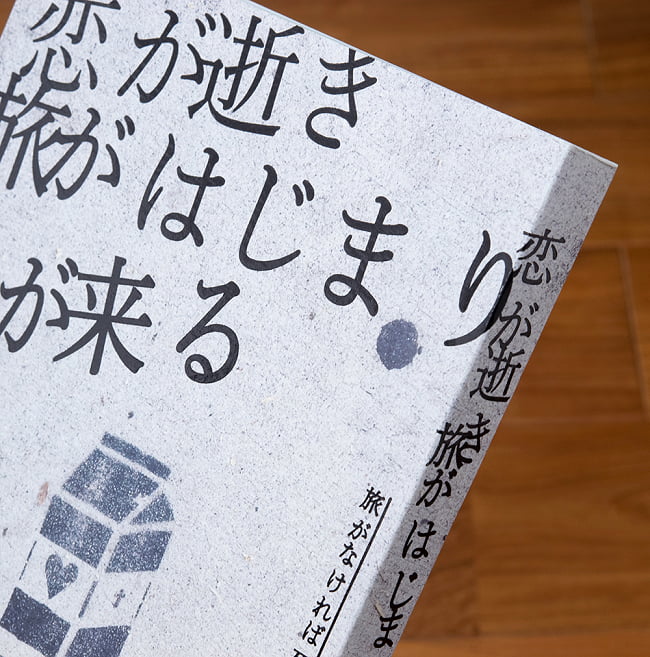 恋が逝き
旅がはじまり
が来る
旅がなければ
恋が逝き旅がはじま